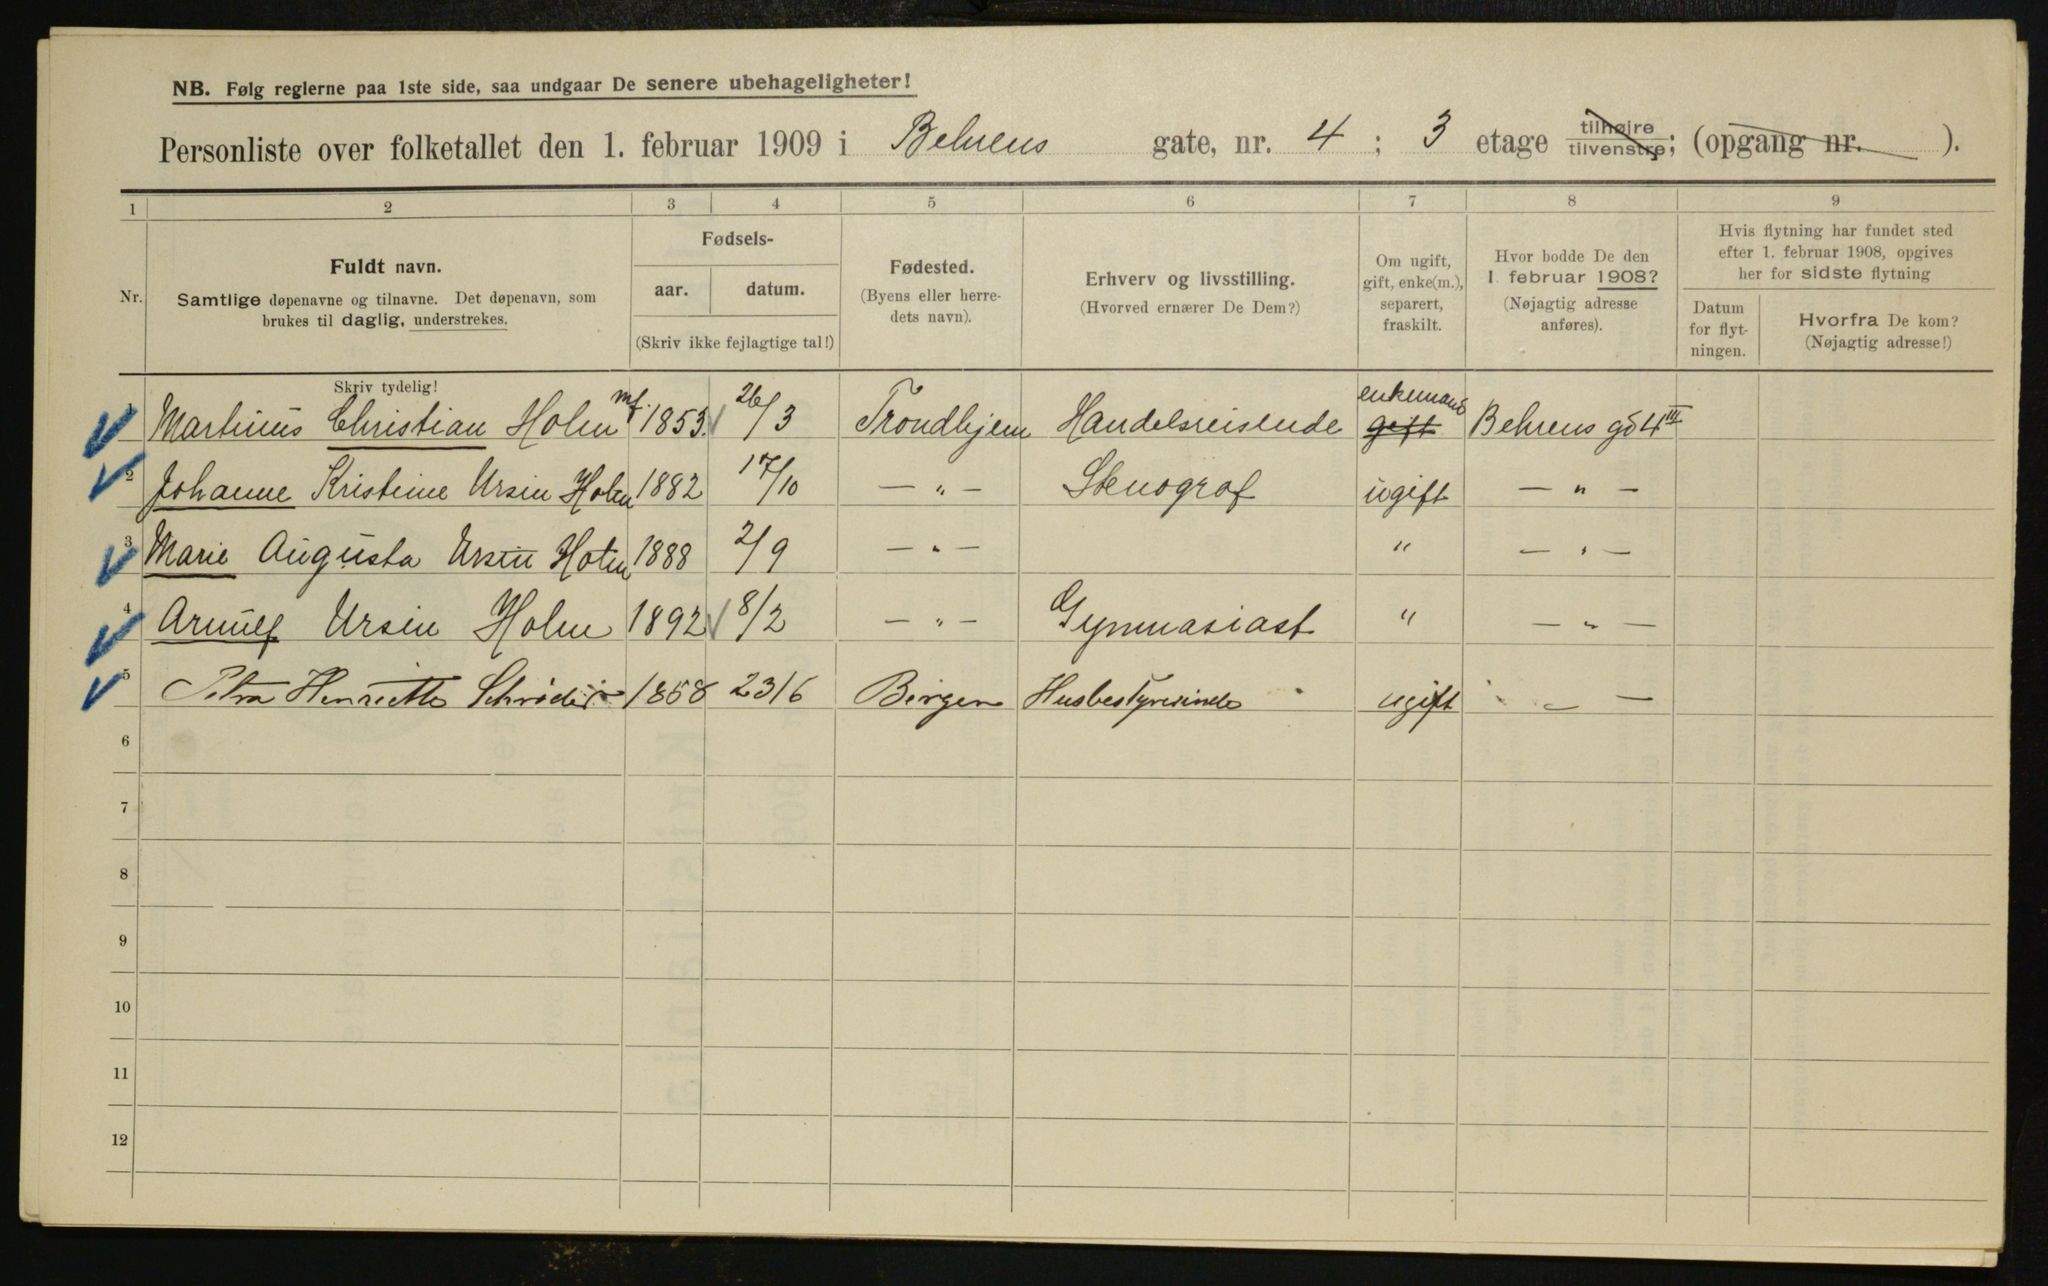 NB. Følg reglerne paa 1ste side, saa undgaar De senere ubehageligheter!
Personliste over folketallet den 1. februar 1909 i Behrens gate, nr. 4 ; 3 etage tilhøjre tilvenstre; (opgang nr. ).
1 2 3 4 5 6 7 8 9
Nr.
Fuldt navn.
Samtlige døpenavne og tilnavne. Det døpenavn, som
brukes til daglig, understrekes.
Fødsels-
aar. datum.
(Skriv ikke fejlagtige tal!)
Fødested.
(Byens eller herre-
dets navn).
Erhverv og livsstilling.
(Hvorved ernærer De Dem?)
Om ugift,
gift, enke(m.),
separert,
fraskilt.
Hvor bodde De den
1. februar 1908?
(Nøjagtig adresse
anføres).
Hvis flytning har fundet sted
efter 1. februar 1908, opgives
her for sidste flytning
Datum
for flyt-
ningen.
Hvorfra De kom?
(Nøjagtig adresse!)
Skriv tydelig!
1 Martinus Christian Holm mf 1853 26/3 Trondhjem Handelsreisende enkemand gift Behrens gd 4 III
2 Johanne Kristine Ursin Holm 1882 17/10 — „ — Stenograf ugift — „ —
3 Marie Augusta Ursin Holm 1888 2/9 — „ — „ — „ —
4 Arnulf Ursin Holm 1892 8/2 — „ — Gymnasiast „ — „ —
5 Petra Henriette Schrøder 1858 23/6 Bergen Husbestyrerinde ugift „ — —
6
7
8
9
10
11
12